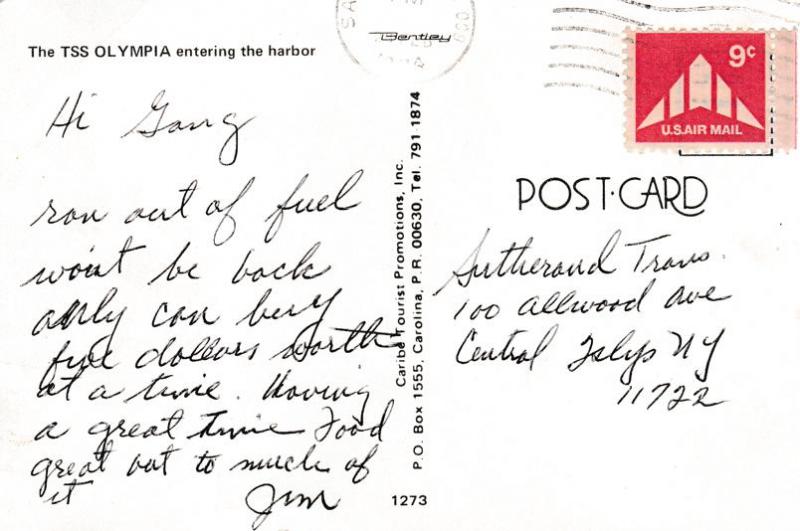 The TSS OLYMPIA entering the harbor
Bentley
Hi Gang
ran out of fuel
won't be back
only can buy
five dollars worth
at a time. Having
a great time Food
great but to much of
it Jim
Caribe Tourist Promotions, Inc.
P.O. Box 1555, Carolina, P.R. 00630, Tel. 791 1874
1273
9¢
U.S. AIR MAIL
POST·CARD
Sutherand Trans.
100 allwood Ave
Central Islyp NY
11722